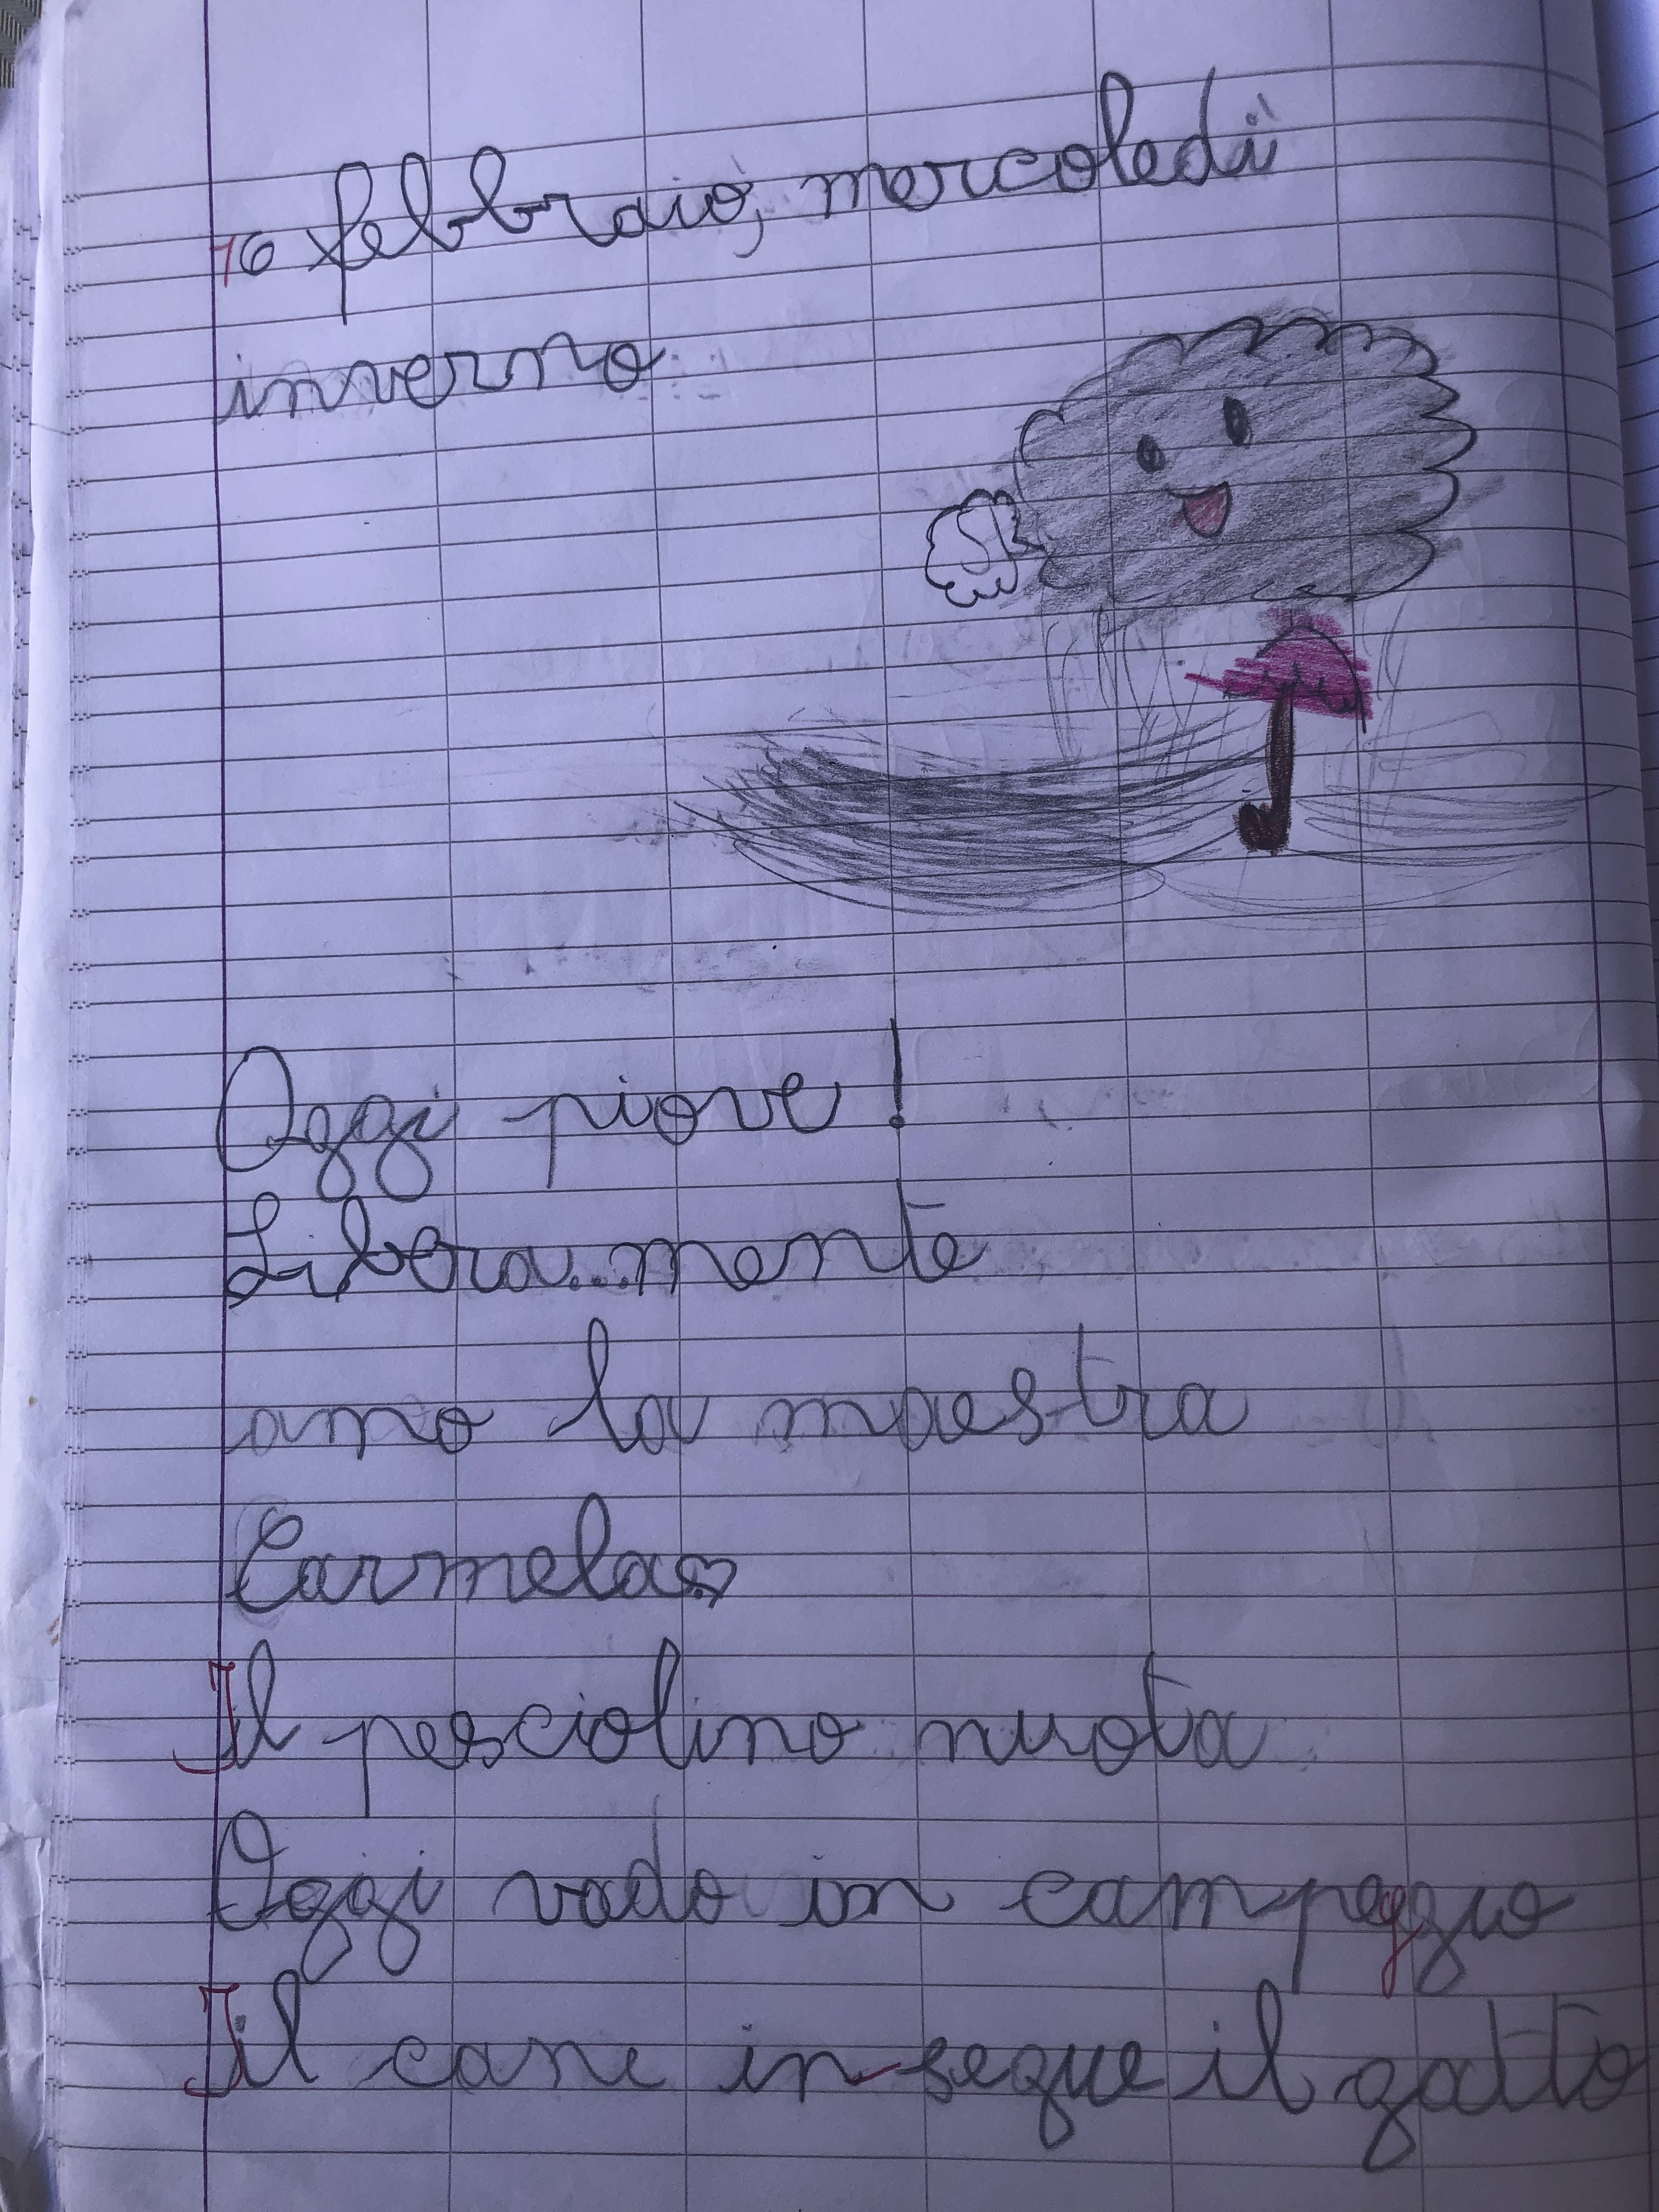 16 febbraio, mercoledì
inverno
SÌ
Oggi piove!
Libera...mente
amo la maestra
Carmela♡
Il pesciolino nuota
Oggi vado in campeggio
Il cane insegue il gatto